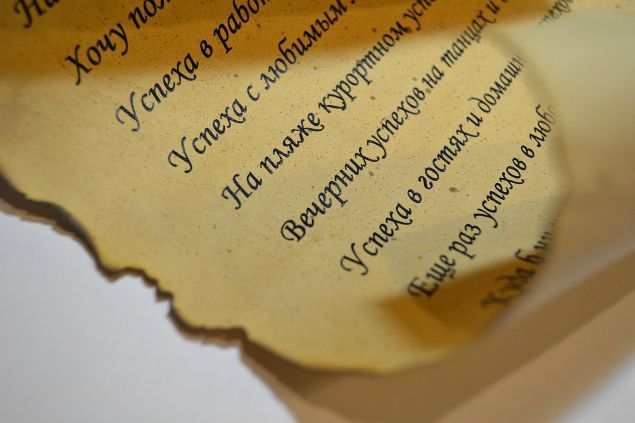 На
Хочу
Успеха в
Успеха с любимым
На пляже курортном
Вечерних успехов на танцах и
Успеха в гостях и
Еще раз успехов в